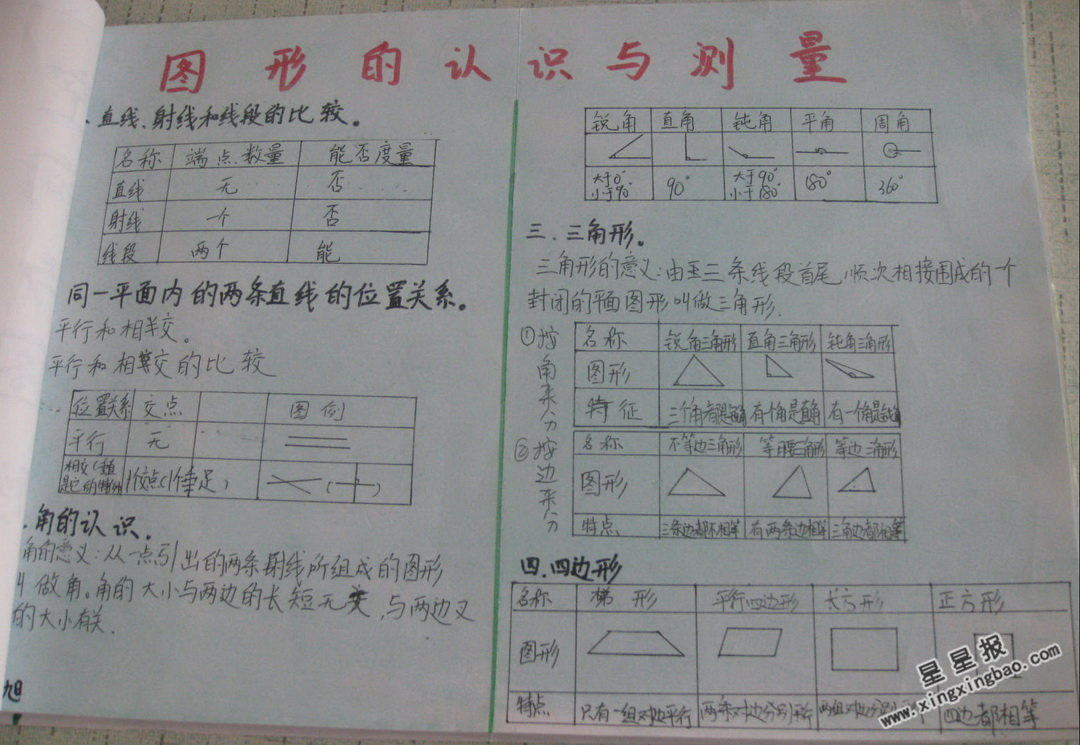 图形的认识与测量
、直线、射线和线段的比较。
名称 端点数量 能否度量
直线 无 否
射线 一个 否
线段 两个 能
同一平面内的两条直线的位置关系。
平行和相交。
平行和相交的比较
位置关系 交点 图例
平行 无
相交 1个交点(1个垂足)
、角的认识。
角的意义:从一点引出的两条射线所组成的图形
叫做角。角的大小与两边的长短无关,与两边叉
的大小有关.
旭
锐角 直角 钝角 平角 周角
大于0° 小于90° 90° 大于90° 小于180° 180° 360°
三.三角形。
三角形的意义:由三条线段首尾顺次相接围成的一个
封闭的平面图形叫做三角形.
①按角来分
名称 锐角三角形 直角三角形 钝角三角形
图形
特征 三个角都是锐角 有一个角是直角 有一个角是钝角
②按边来分
名称 不等边三角形 等腰三角形 等边三角形
图形
特点 三条边都不相等 有两条边相等 三条边都相等
四.四边形
名称 梯形 平行四边形 长方形 正方形
图形
特点 只有一组对边平行 两条对边分别平行 两组对边分别 四边都相等
星星报
www.xingxingbao.com